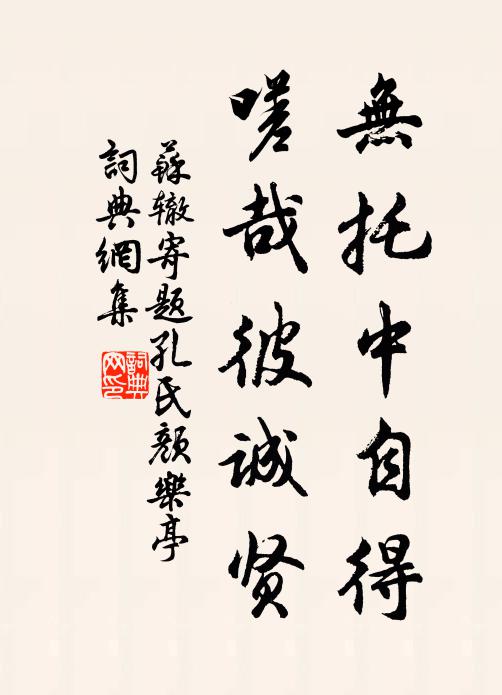 無托中自得
嗟哉彼诚贤
蘇辙寄題孔氏顏樂亭
詞典網集
詞典网印